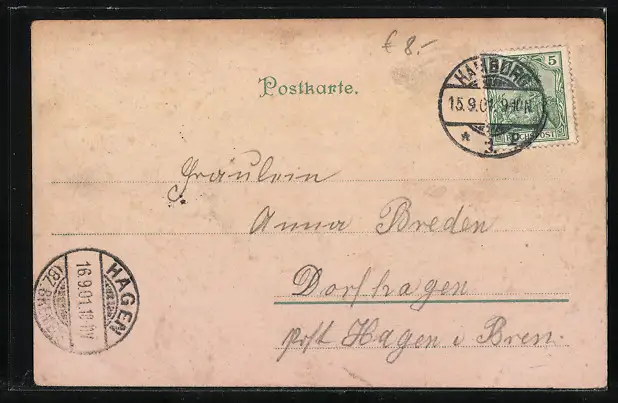 € 8.-
Postkarte.
5
HAMBURG
15.9.01. 9-10 N.
* 3. *
REICHSPOST
Fräulein
Anna Breden
Dorfhagen
Post Hagen i Brem.
HAGEN
16.9.01.
(BZ. BREMEN)